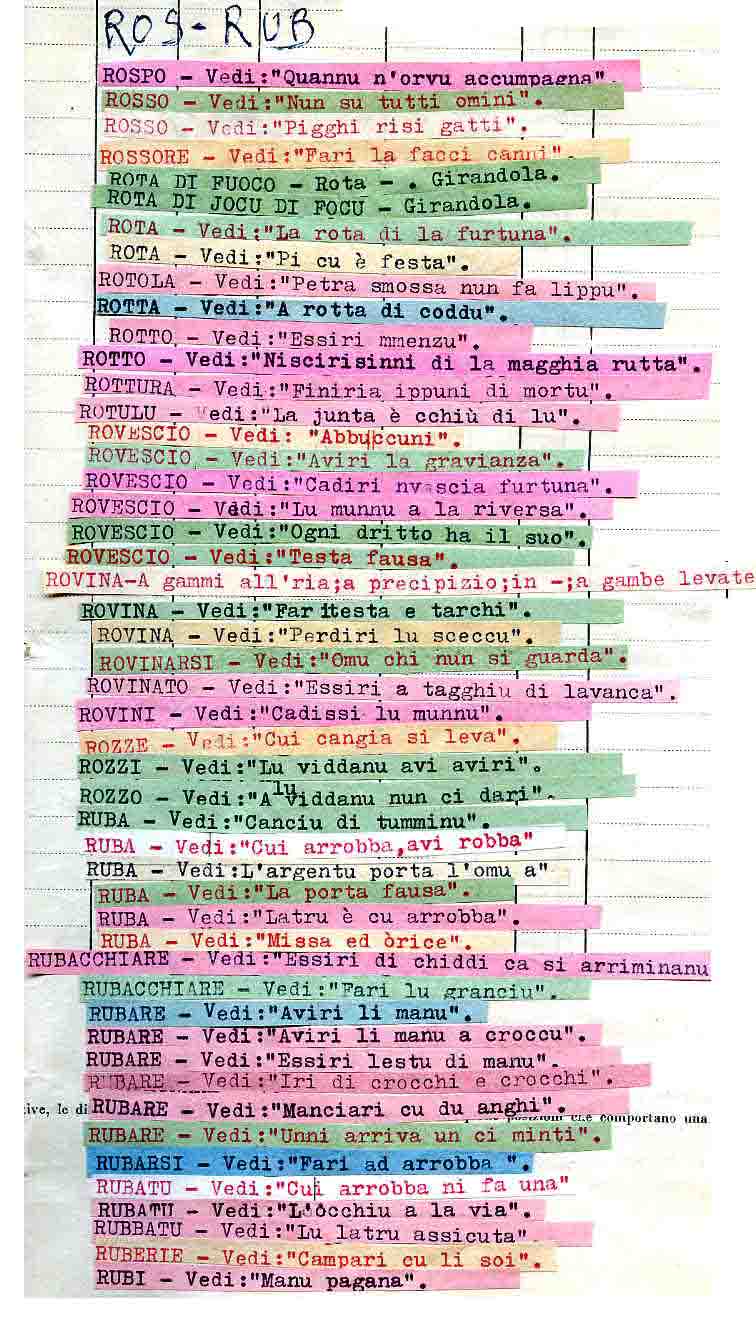 ROS-RUB
ROSPO - Vedi:"Quannu n'orvu accumpagna".
ROSSO - Vedi:"Nun su tutti omini".
ROSSO - Vedi:"Pigghi risi gatti".
ROSSORE - Vedi:"Fari la facci canni".
ROTA DI FUOCO - Rota - . Girandola.
ROTA DI JOCU DI FOCU - Girandola.
ROTA - Vedi:"La rota di la furtuna".
ROTA - Vedi:"Pi cu è festa".
ROTOLA - Vedi:"Petra smossa nun fa lippu".
ROTTA - Vedi:"A rotta di coddu".
ROTTO - Vedi:"Essiri mmenzu".
ROTTO - Vedi:"Niscirisinni di la magghia rutta".
ROTTURA - Vedi:"Finiria ippuni di mortu".
ROTULU - Vedi:"La junta è cchiù di lu".
ROVESCIO - Vedi: "Abbuccuni".
ROVESCIO - Vedi:"Aviri la gravianza".
ROVESCIO - Vedi:"Cadiri nvascia furtuna".
ROVESCIO - Vedi:"Lu munnu a la riversa".
ROVESCIO - Vedi:"Ogni dritto ha il suo".
ROVESCIO - Vedi:"Testa fausa".
ROVINA-A gammi all'ria;a precipizio;in -;a gambe levate
ROVINA - Vedi:"Fari testa e tarchi".
ROVINA - Vedi:"Perdiri lu sceccu".
ROVINARSI - Vedi:"Omu chi nun si guarda".
ROVINATO - Vedi:"Essiri a tagghiu di lavanca".
ROVINI - Vedi:"Cadissi lu munnu".
ROZZE - Vedi:"Cui cangia si leva".
ROZZI - Vedi:"Lu viddanu avi aviri".
ROZZO - Vedi:"A lu viddanu nun ci dari".
RUBA - Vedi:"Canciu di tumminu".
RUBA - Vedi:"Cui arrobba,avi robba"
RUBA - Vedi:L'argentu porta l'omu a"
RUBA - Vedi:"La porta fausa".
RUBA - Vedi:"Latru è cu arrobba".
RUBA - Vedi:"Missa ed òrice".
RUBACCHIARE - Vedi:"Essiri di chiddi ca si arriminanu
RUBACCHIARE - Vedi:"Fari lu granciu".
RUBARE - Vedi:"Aviri li manu".
RUBARE - Vedi:"Aviri li manu a croccu".
RUBARE - Vedi:"Essiri lestu di manu".
RUBARE - Vedi:"Iri di crocchi e crocchi".
ive, le di RUBARE - Vedi:"Manciari cu du anghi". che comportano una
RUBARE - Vedi:"Unni arriva un ci minti".
RUBARSI - Vedi:"Fari ad arrobba ".
RUBATU - Vedi:"Cui arrobba ni fa una"
RUBATU - Vedi:"L'òcchiu a la via".
RUBBATU - Vedi:"Lu latru assicuta".
RUBERIE - Vedi:"Campari cu li soi".
RUBI - Vedi:"Manu pagana".